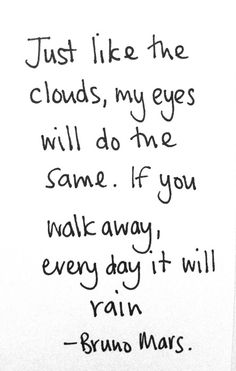 Just like the
clouds, my eyes
will do the
same. If you
walk away,
every day it will
rain
-Bruno Mars.